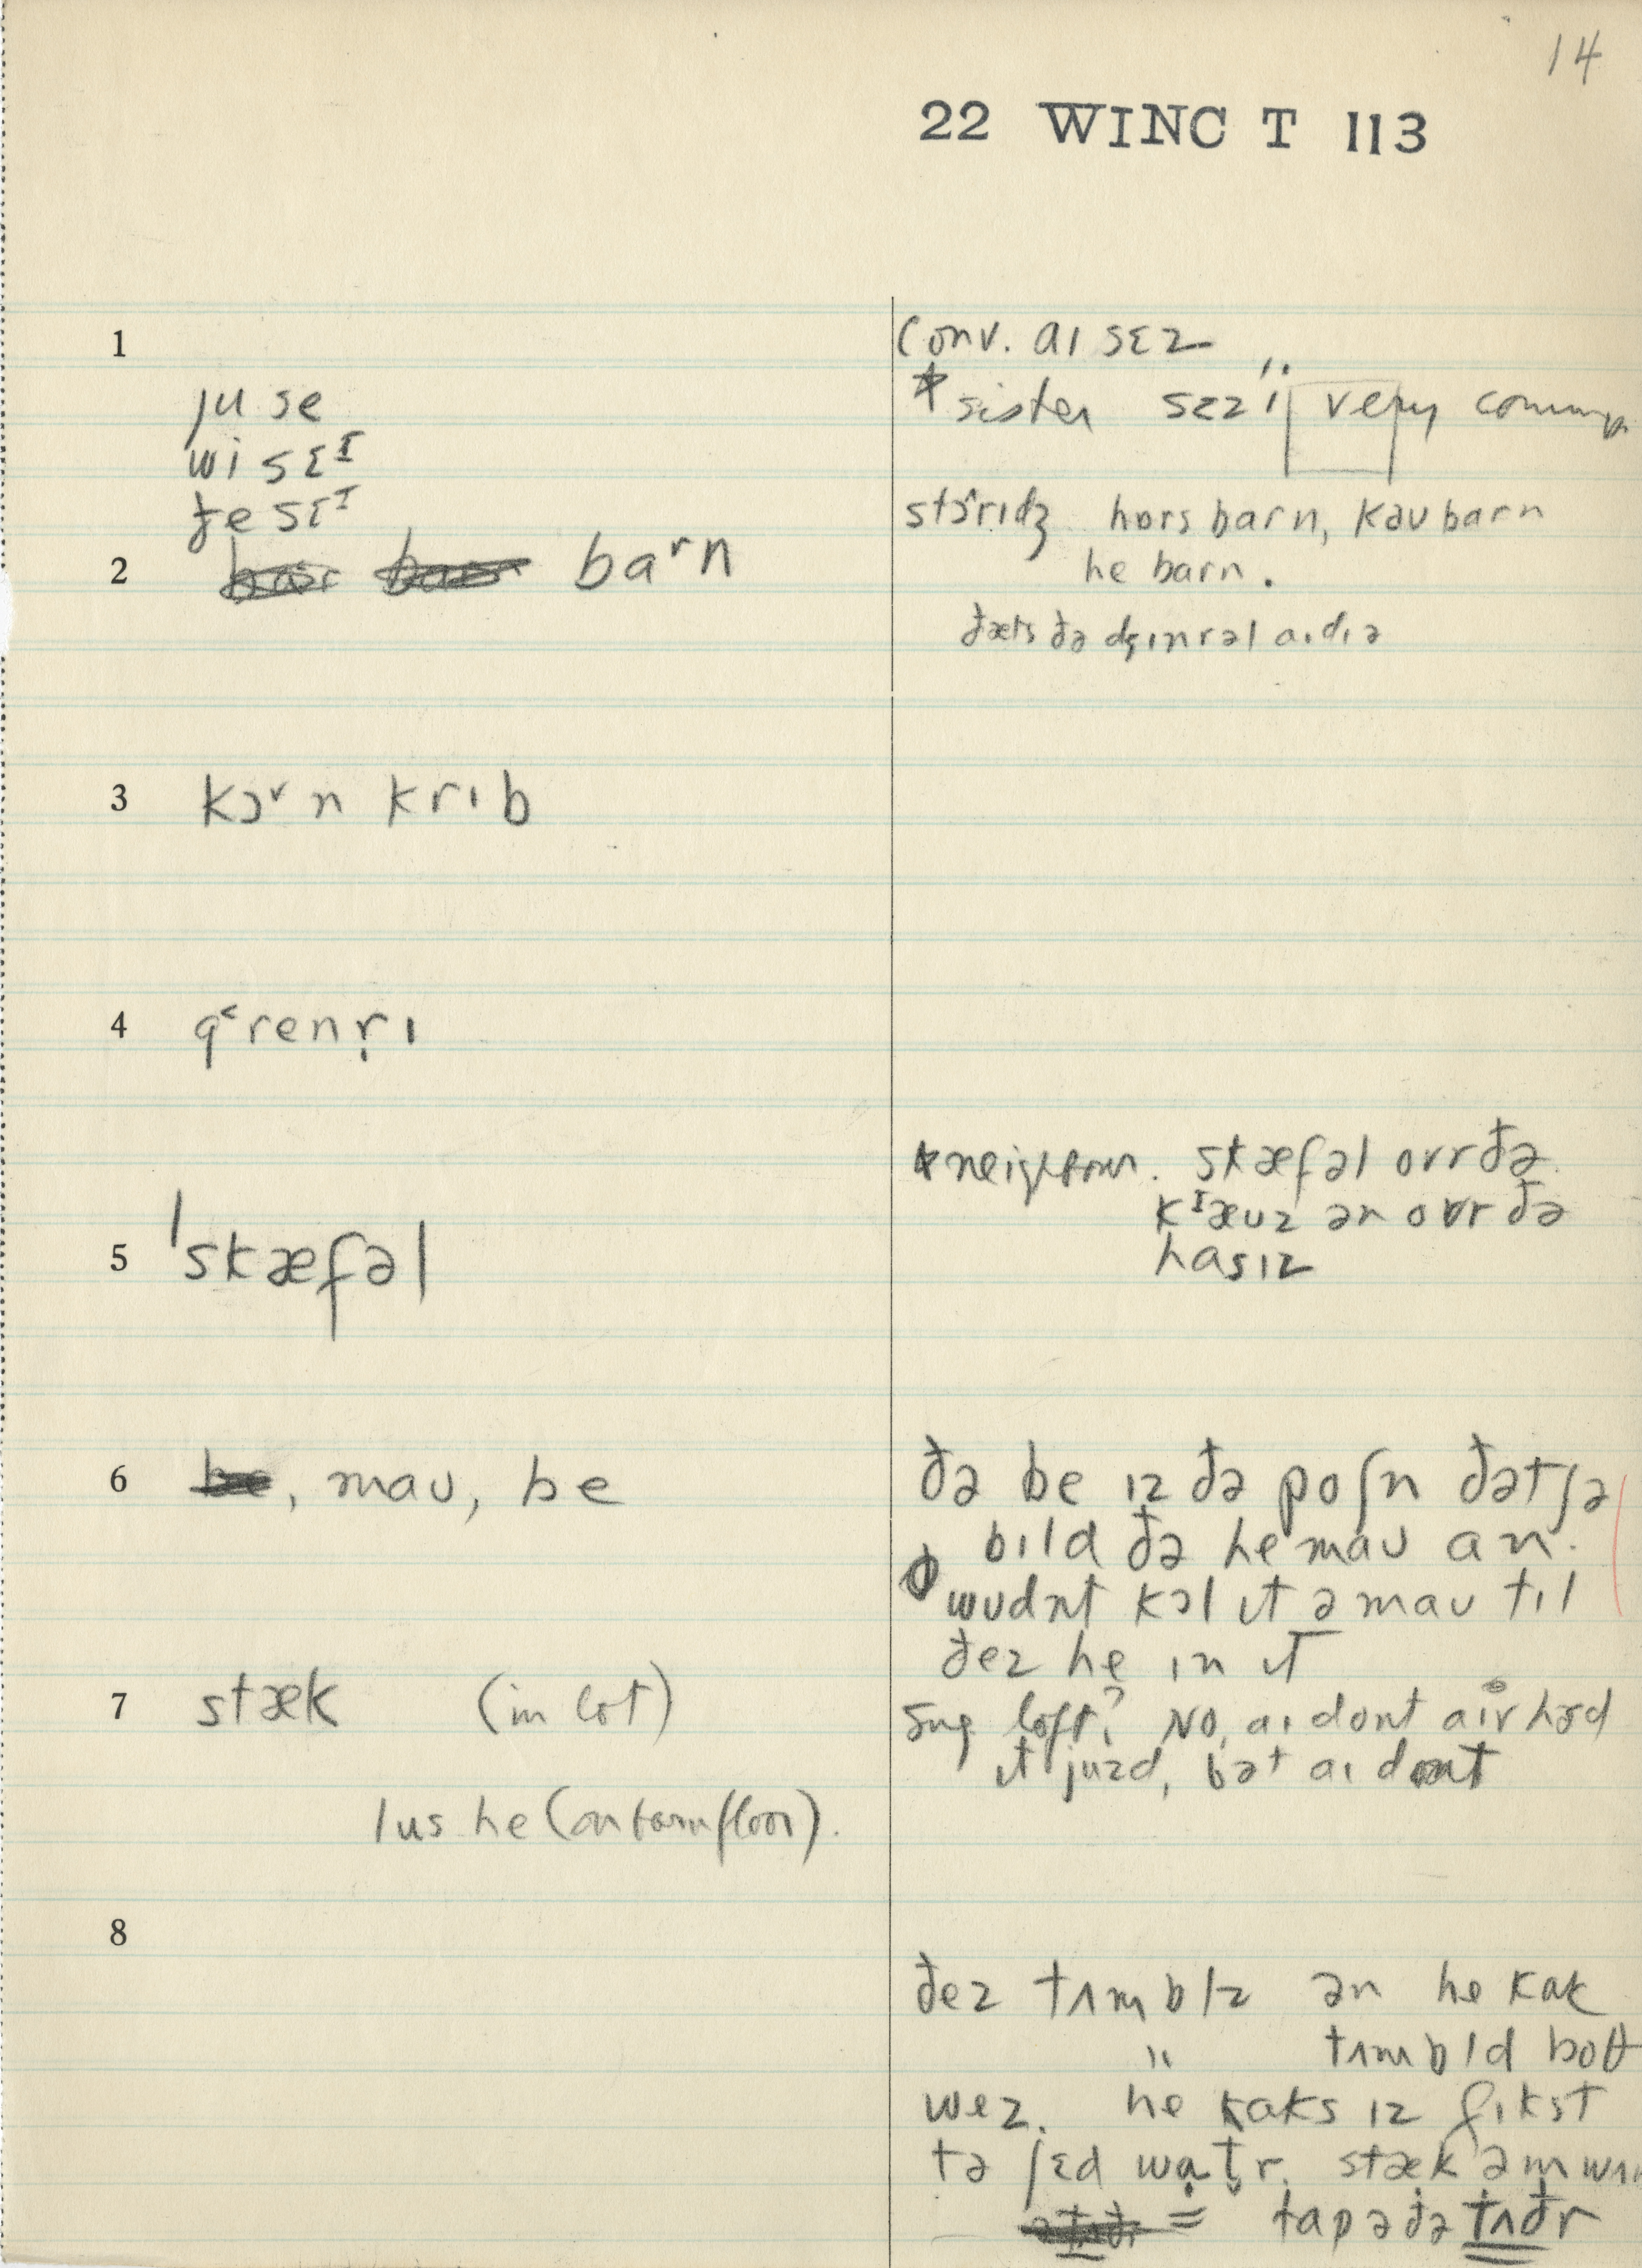 14
22 WINC T 113
1
conv. aɪ sɛz
* sister sɛz i, very common
ju se
wi sɛᴵ
ðe sɛᴵ
2 baʳn
stɔrɪdʒ hɒrs barn, kaʊ barn
he barn.
ðæts ðə dʒɪnrəl aɪdɪə
3 kɔʳn krɪb
4 gʳrenr̩ɪ
5 ˈskæfəl
* neighbour. skæfəl ovr ðə
kᴵæʊz ən ovr ðə
hasɪz
6 , maʊ, be
ðə be ɪz ðə poʃn ðət ʃə
bɪld ðə he maʊ an.
wʊdnt kɔl ɪt ə maʊ tɪl
ðez he ɪn ɪt
7 stæk (in lot)
sug loft? No, aɪ dont aɪv hɜd
ɪt juzd, bət aɪ dont
lus he (on barn floor).
8
ðez tʌmblz ən he kak
" tʌmbld boθ
wez. he kaks ɪz fɪkst
tə ʃɛd watr. stæk əm
= tap ə ðə tʌðr